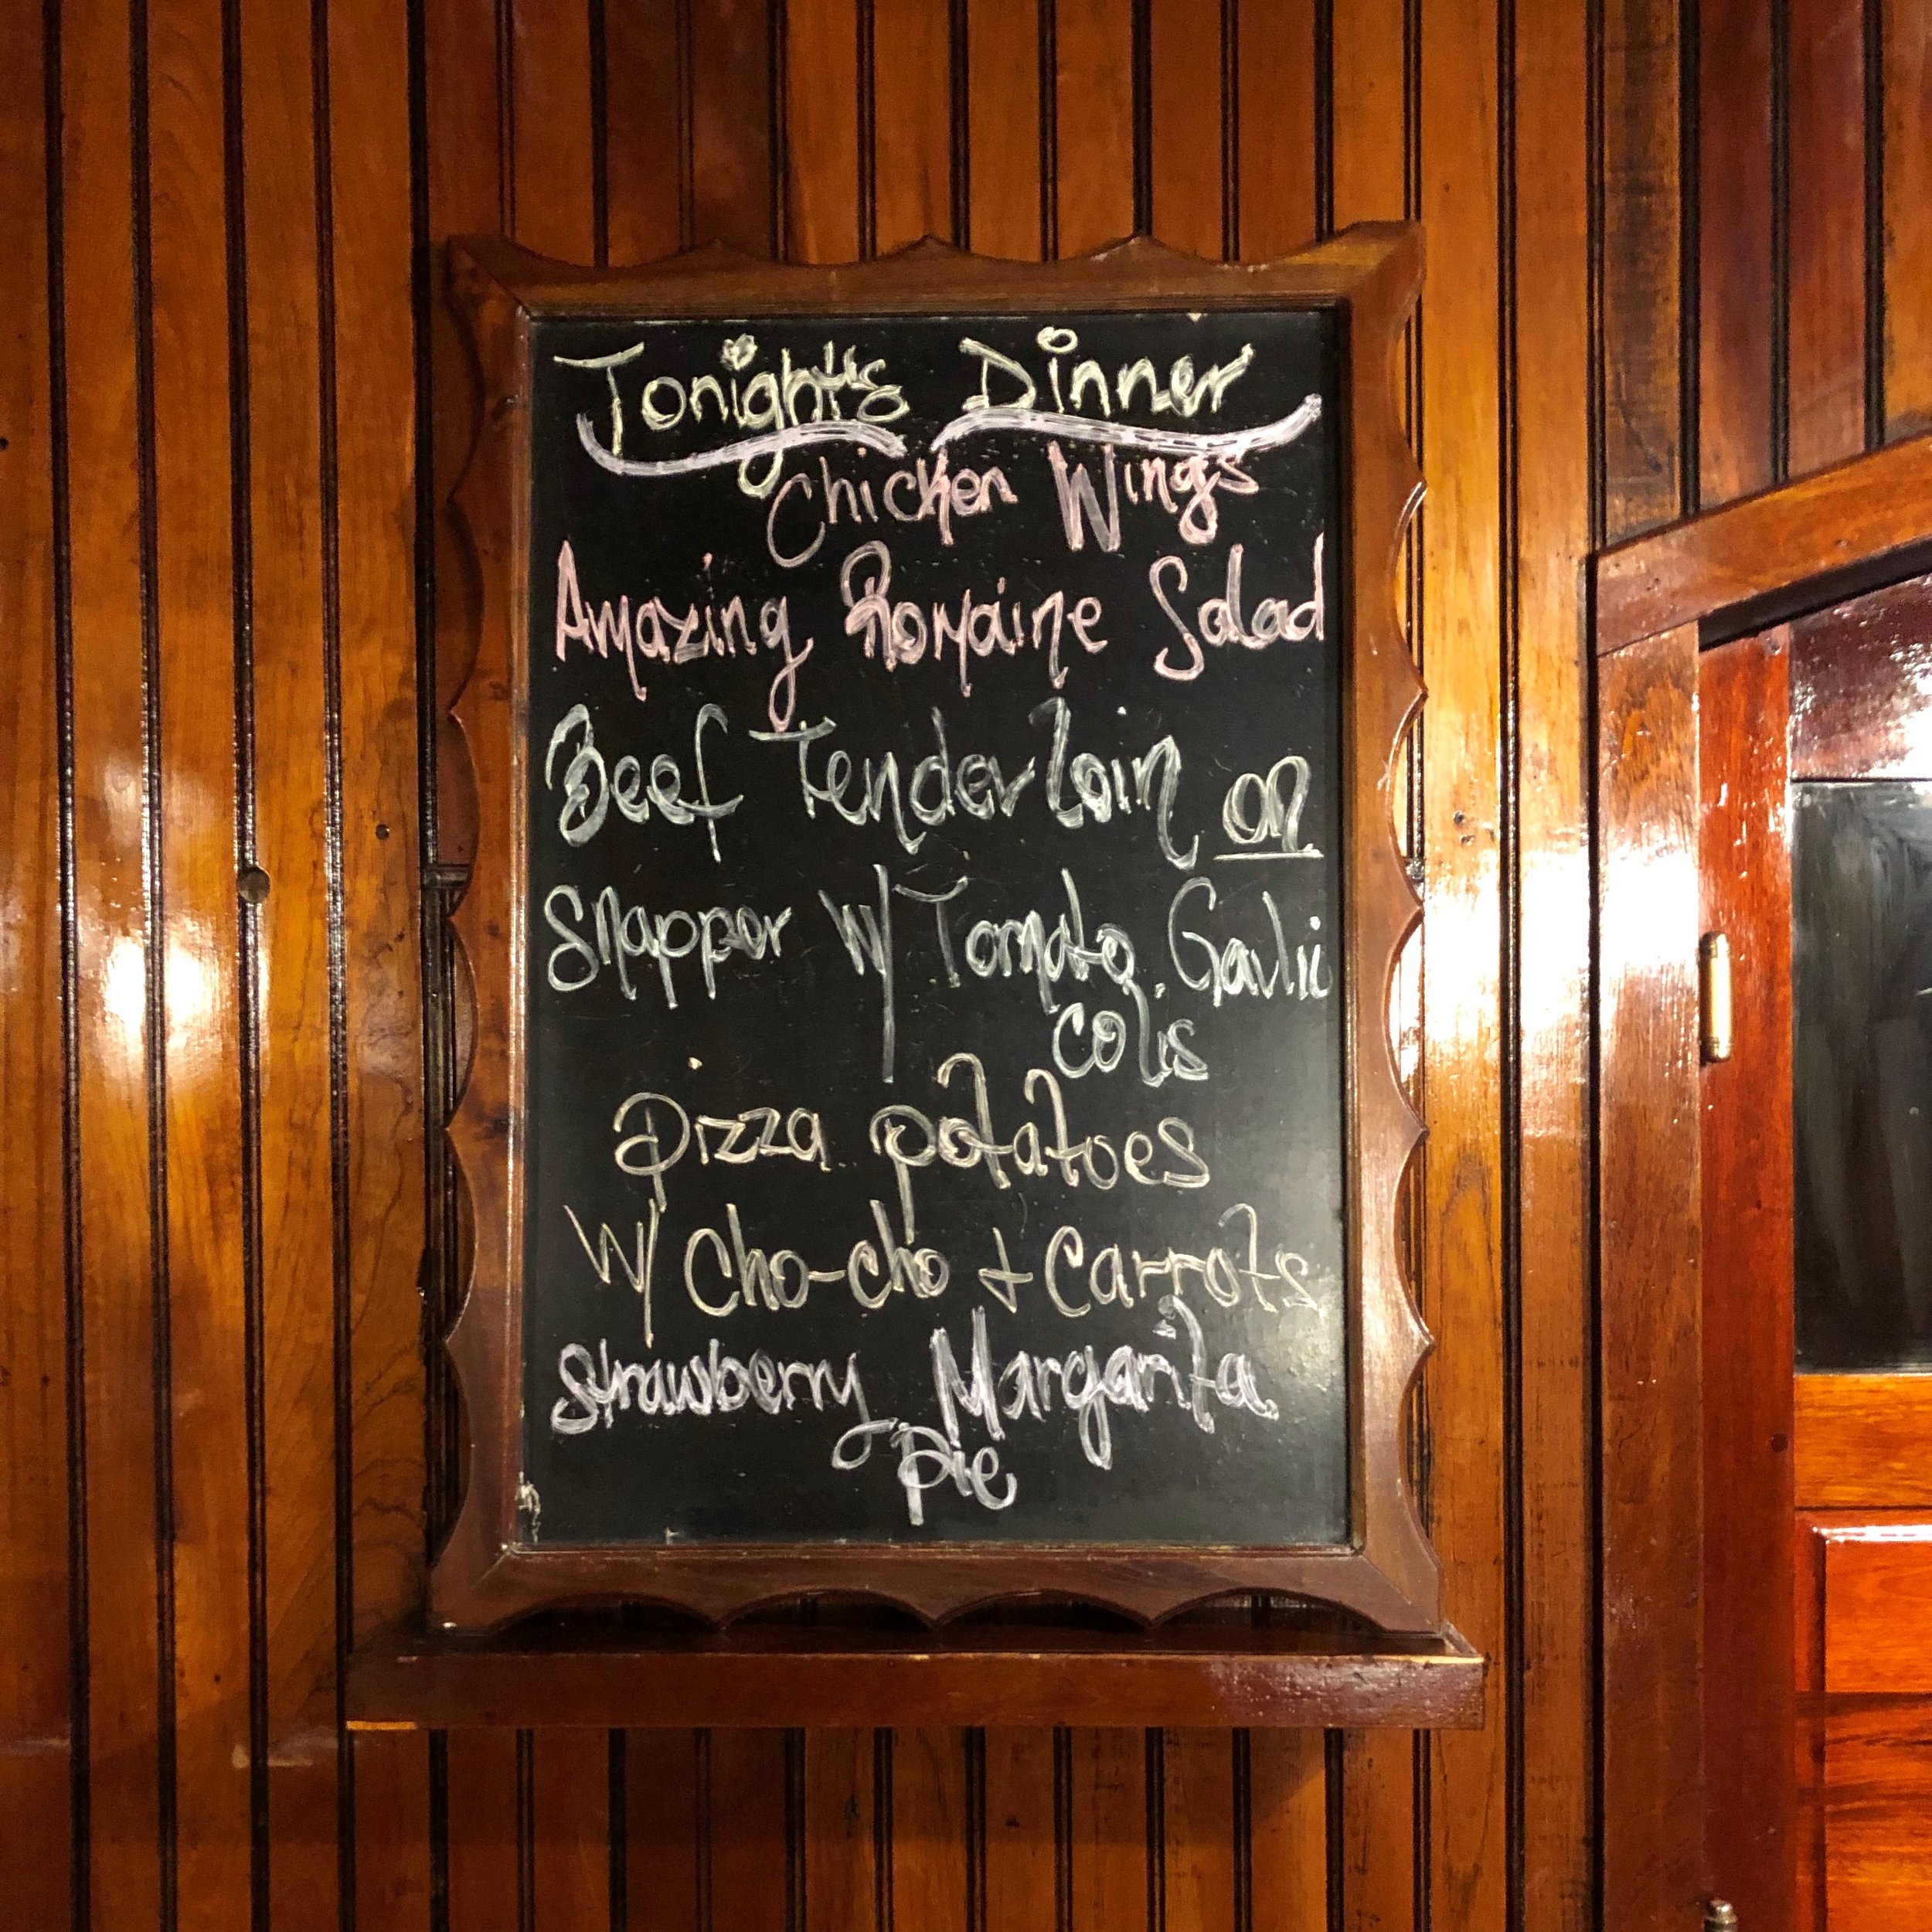 Tonight's Dinner
Chicken Wings
Amazing Romaine Salad
Beef Tenderloin on
Snapper W/ Tomato Garlic
Colis
Pizza potatoes
W/ Cho-cho + Carrots
Strawberry Margarita
Pie